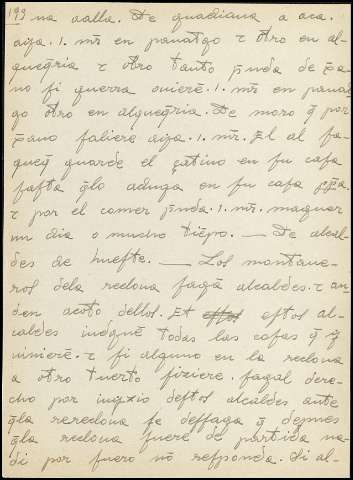 199 na aalla. De guadiana a aca.
aya .1. mr̄ en panatgo τ otro en al-
quequeria τ otro tanto p̄nda de pa-
no si guerra ouiere .1. mr̄ en panat
go otro en alqueq̄ria. De moro q̄ por
xp̄ano saliere aya .1. mr̄. El al fa-
queq̄ guarde el catiuo en su casa
fasta q̄lo aduga en su casa
τ por el comer p̄nda .1. mr̄. maguer
un dia o mucho tiēpo. — De alcal-
des de huefte. — Los montane-
ros dela recloua fagā alcaldes. τ an-
den acoto dellos. Et estos al-
caldes indguē todas las cosas q̄ y
uinierē. τ si alguno en la reclona
a otro tuerto fiziere. fagal dere-
cho por iuyzio destos alcaldes ante
q̄la rereclona se desfaga q̄ depues
q̄la reclona fuere de partida na-
di por fuero nō responda. Si al-